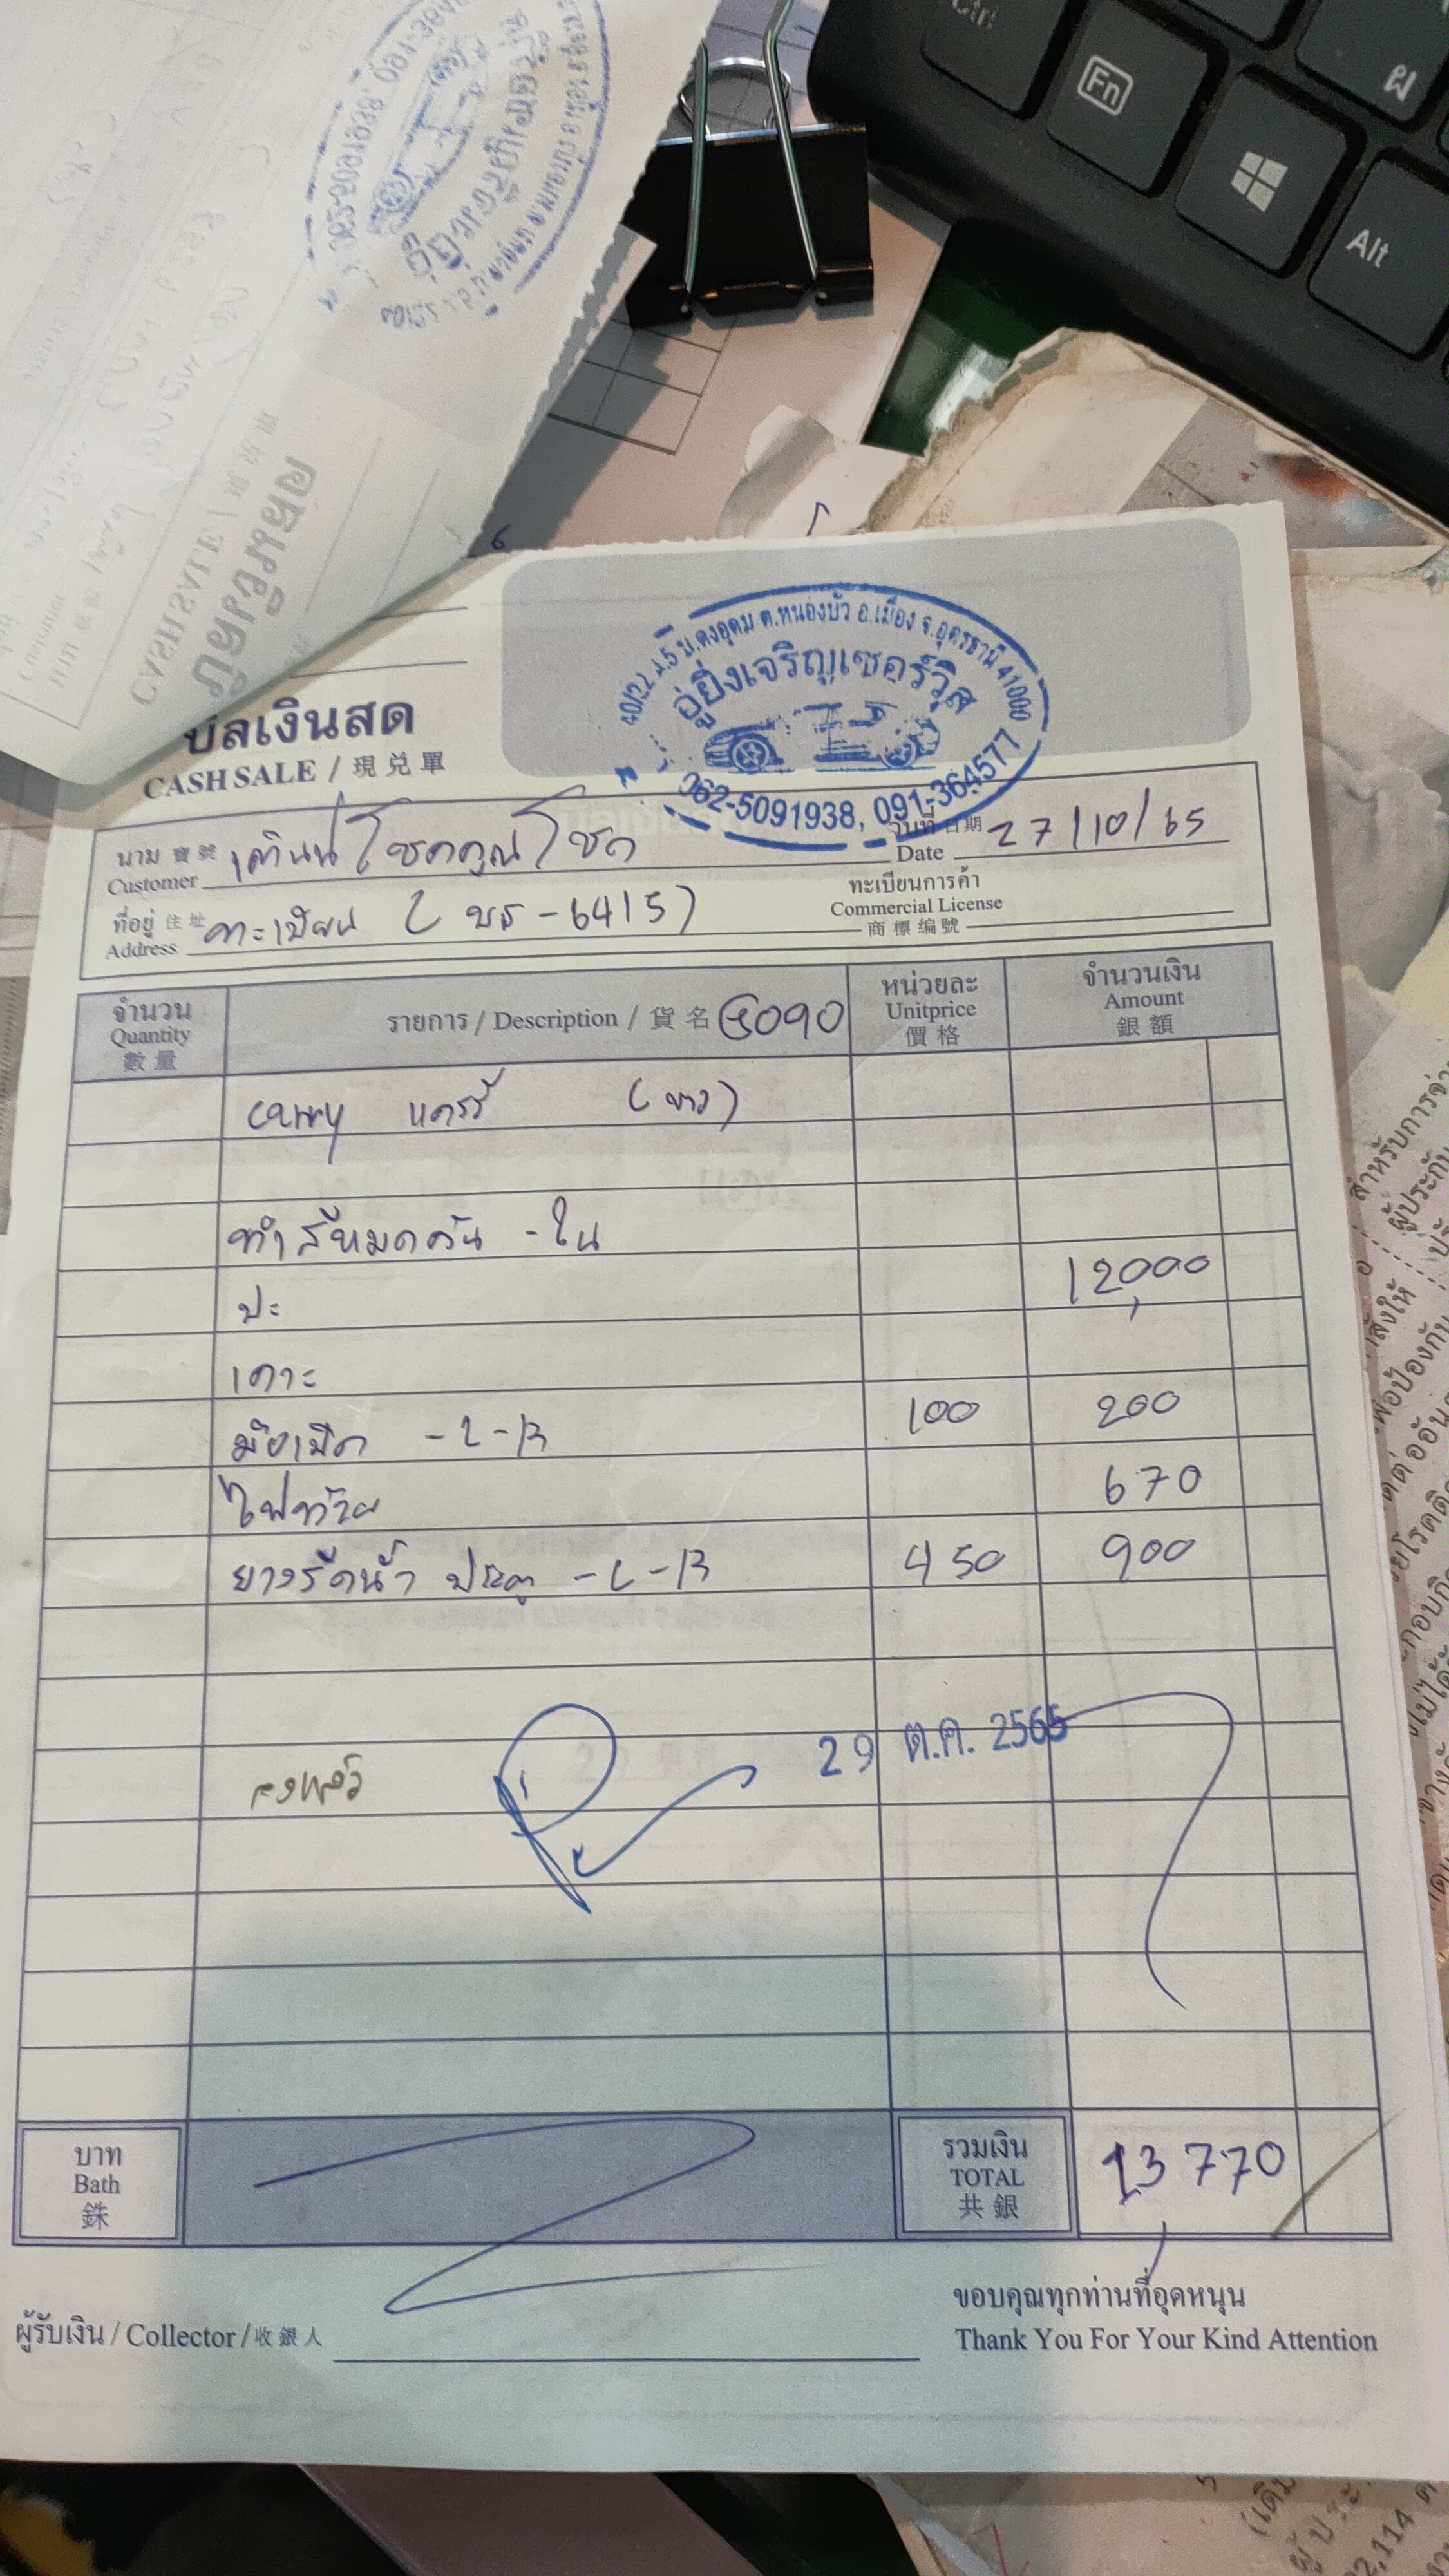 Ctrl
Fn
Alt
ฝ
บิลเงินสด
CASH SALE / 現兌單
40/22 ม.5 บ.ดงอุดม ต.หนองบัว อ.เมือง จ.อุดรธานี 41000
อู่ยิ่งเจริญเซอร์วิส
062-5091938, 091-364577
นาม 寶號
Customer เต็นท์โชคคูณโชค
วันที่ 日期
Date 27/10/65
ที่อยู่ 住址
Address ทะเบียน ( บร - 6415 )
ทะเบียนการค้า
Commercial License
商標編號
จำนวน
Quantity
數量
รายการ / Description / 貨名
หน่วยละ
Unitprice
價格
จำนวนเงิน
Amount
銀額
carry แครรี่ (ขาว)
ทำสีหมดคัน - ใน
ปะ 12,000
เคาะ
มือเปิด - L - R 100 200
ไฟท้าย 670
ยางรีดน้ำ ประตู - L - R 450 900
29 ต.ค. 2565
ลงแล้ว
บาท
Bath
銖
รวมเงิน
TOTAL
共銀
13,770
ผู้รับเงิน / Collector / 收銀人
ขอบคุณทุกท่านที่อุดหนุน
Thank You For Your Kind Attention